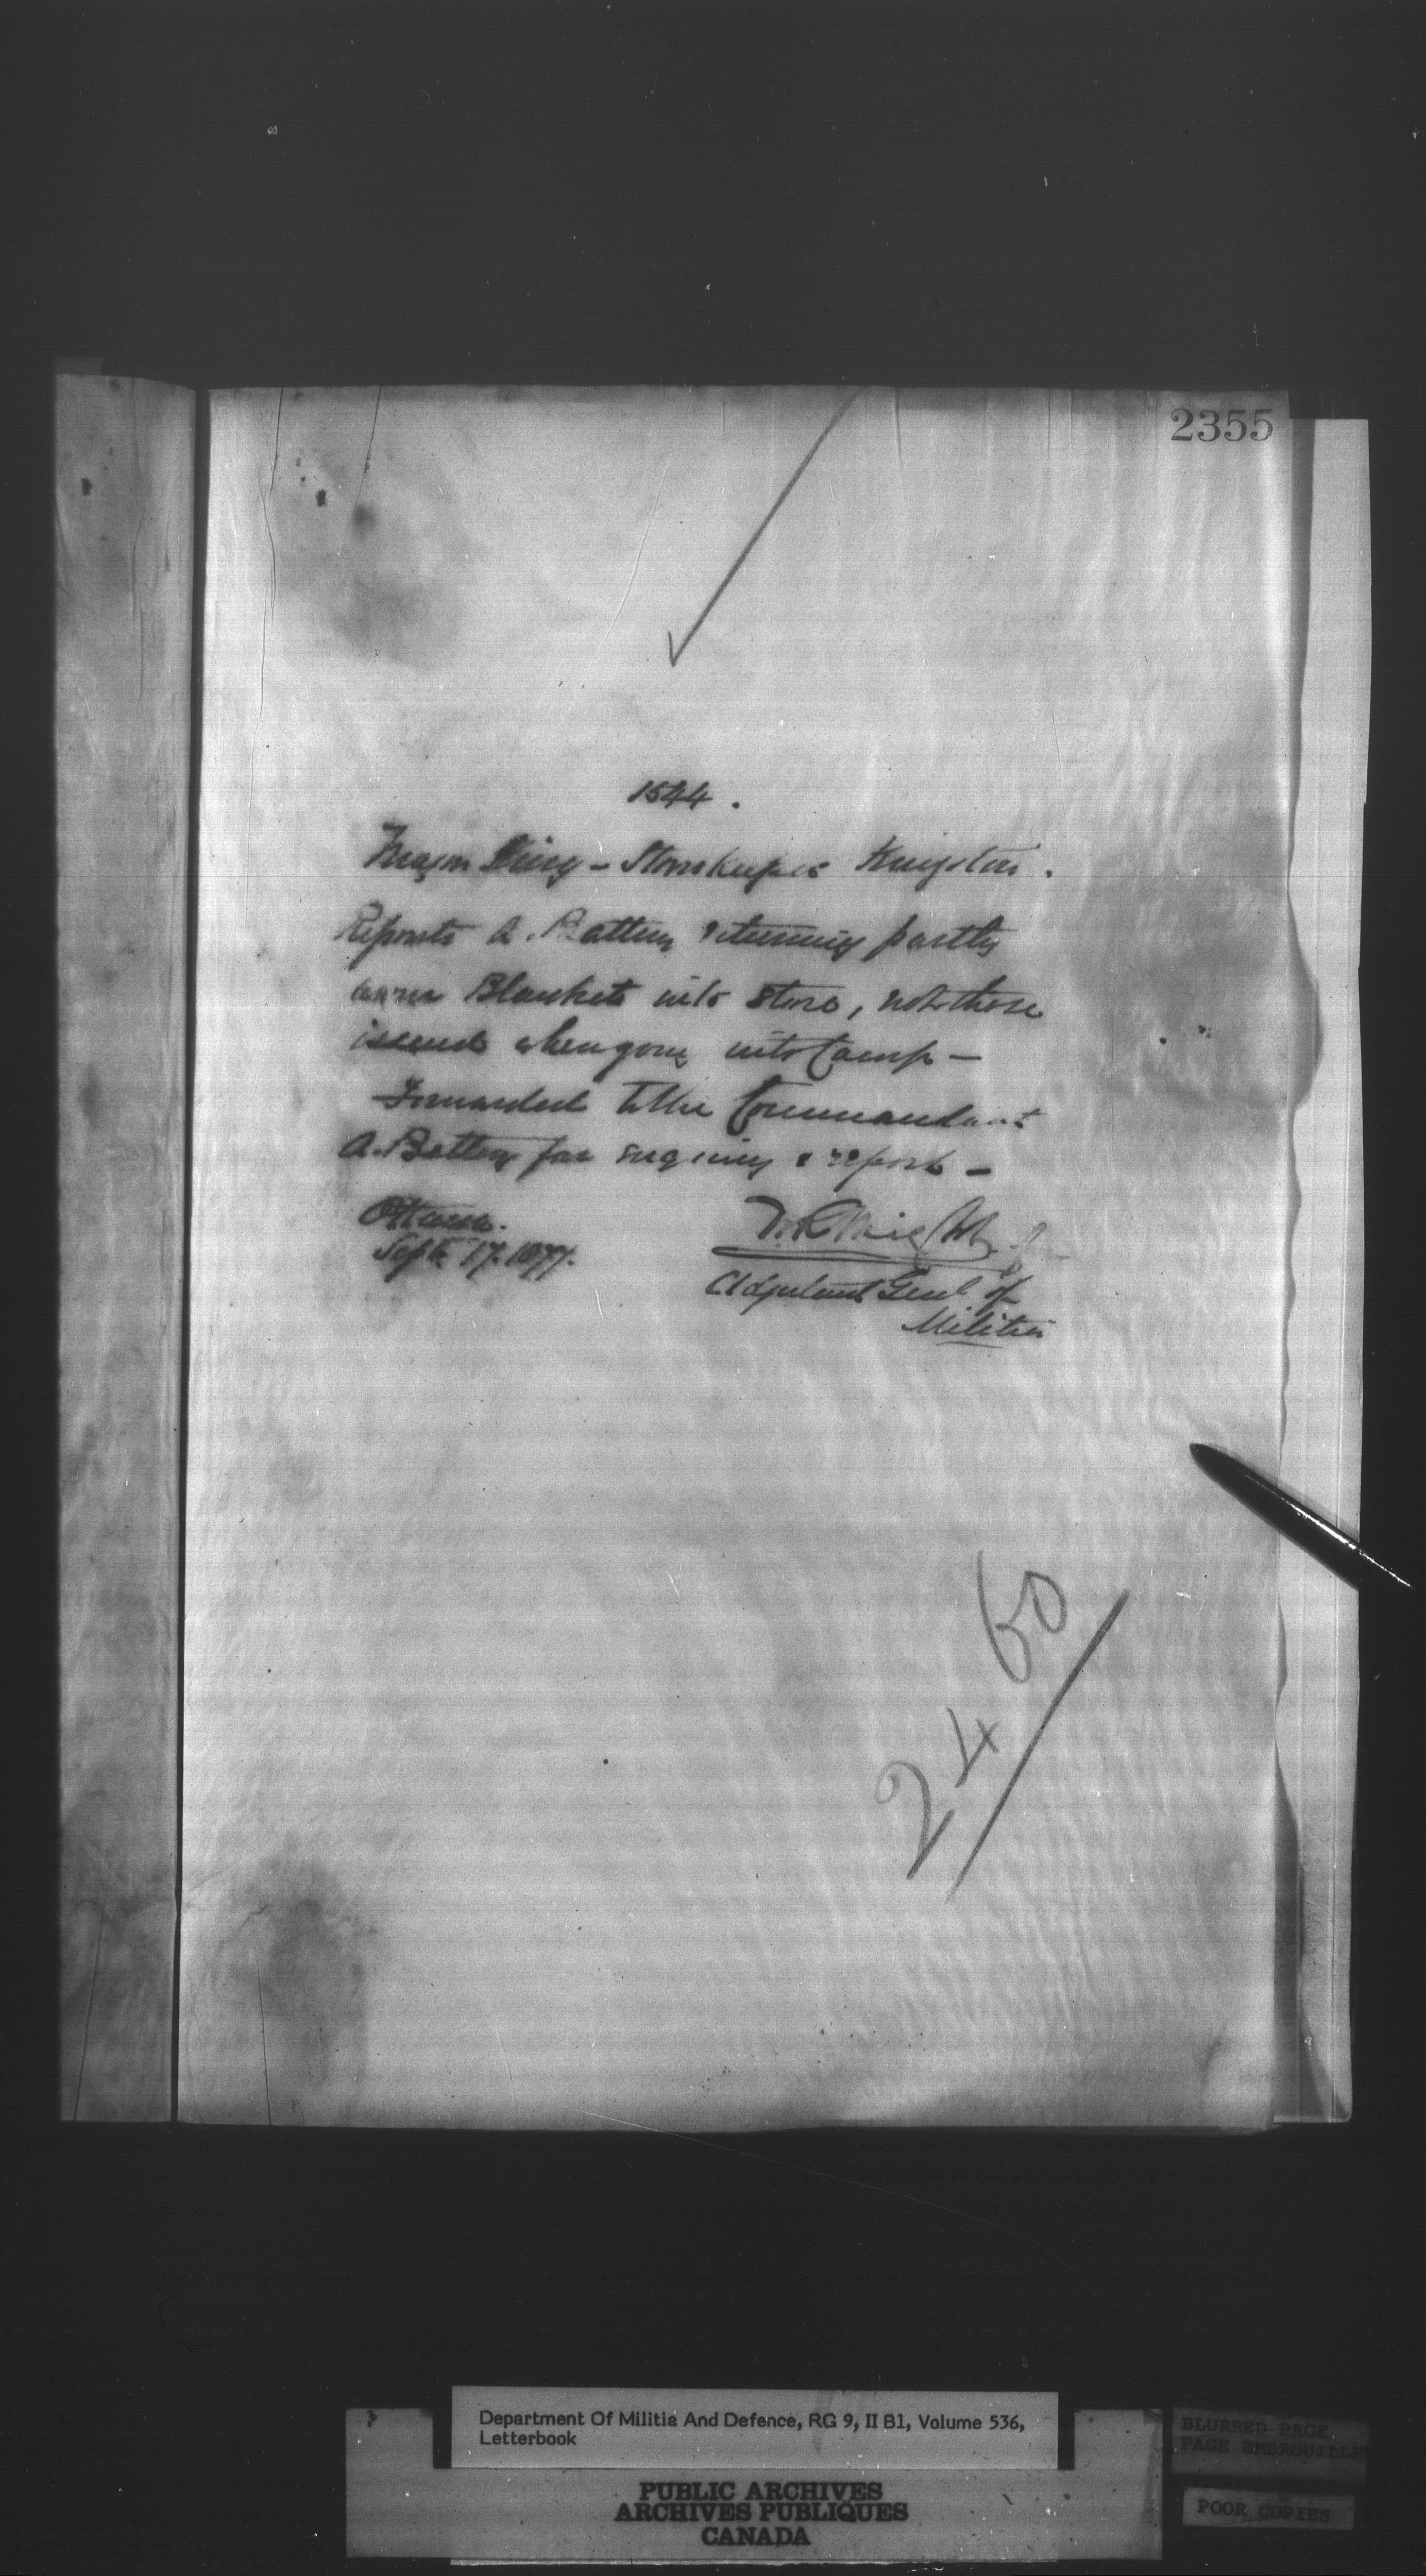 2355
1544.
Major King - Storekeeper Kingston.
Reports A. Battery returning partly
worn Blankets into Store, not those
issued when going into Camp -
Forwarded to the Commandant
A. Battery for enquiry & report -
Ottawa.
Sept. 17. 1877.
Adjutant Genl of
Militia
2460
Department Of Militia And Defence, RG 9, II B1, Volume 536,
Letterbook
PUBLIC ARCHIVES
ARCHIVES PUBLIQUES
CANADA
BLURRED PAGE
PAGE EMBROUILLE
POOR COPIES